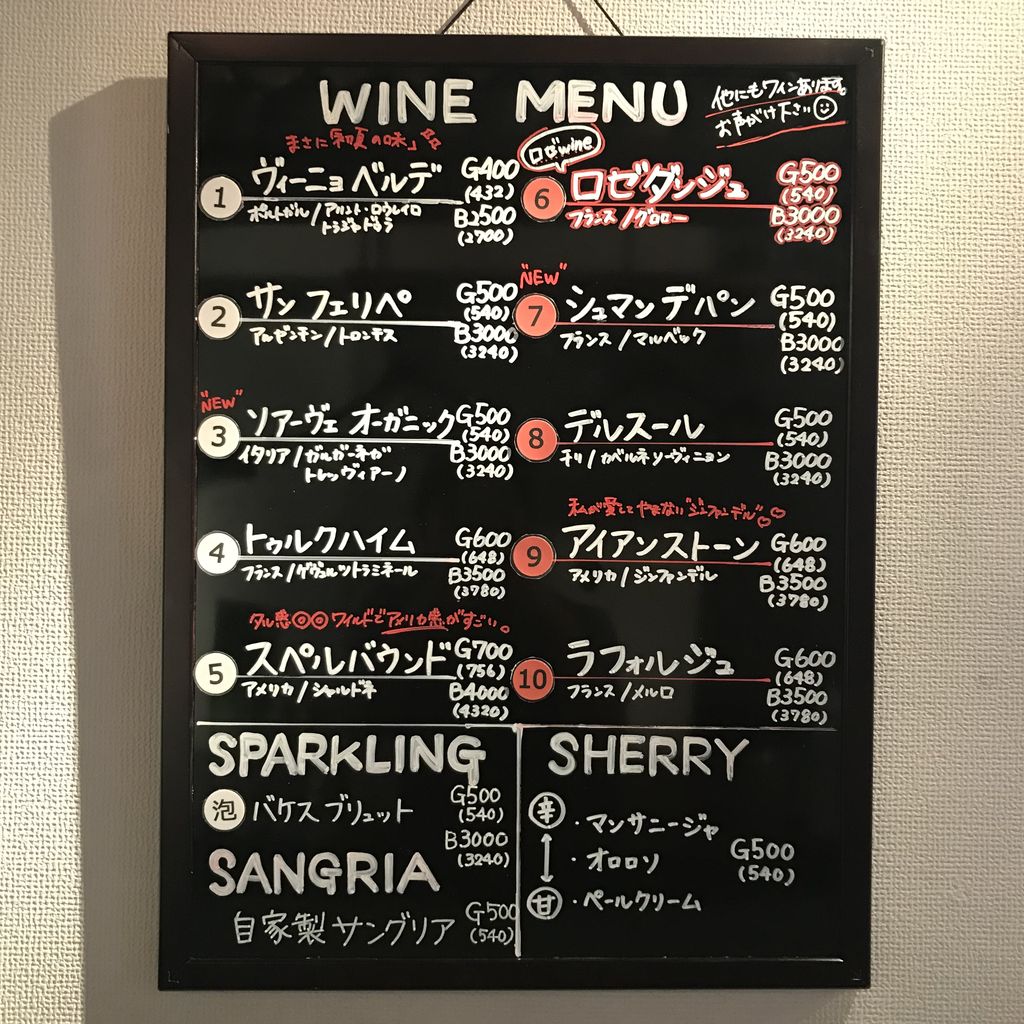 WINE MENU
他にもワインあります。
お声がけ下さい
まさに「初夏の味」
1 ヴィーニョ ベルデ G400
(432)
ポルトガル/アリント・ロウレイロ
B2500
(2700)
ロゼwine
6 ロゼダンジュ G500
(540)
フランス/グロロー B3000
(3240)
2 サン フェリペ G500
(540)
アルゼンチン/トロンテス B3000
(3240)
"NEW"
7 シュマン デパン G500
(540)
フランス/マルベック B3000
(3240)
"NEW"
3 ソアーヴェ オーガニック G500
(540)
イタリア/ガルガーネガ B3000
トレッヴィアーノ (3240)
8 デルスール G500
(540)
チリ/カベルネソーヴィニヨン B3000
(3240)
4 トゥルクハイム G600
(648)
フランス/ゲヴュルツトラミネール B3500
(3780)
私が愛してやまない"ジンファンデル"
9 アイアンストーン G600
(648)
アメリカ/ジンファンデル B3500
(3780)
タル感◎◎ ワイルドでアメリカ感がすごい。
5 スペルバウンド G700
(756)
アメリカ/シャルドネ B4000
(4320)
10 ラフォルジュ G600
(648)
フランス/メルロ B3500
(3780)
SPARKLING
泡 バケスブリュット G500
(540)
B3000
(3240)
SANGRIA
自家製サングリア G500
(540)
SHERRY
辛 ・マンサニージャ
・オロロソ G500
(540)
甘 ・ペールクリーム